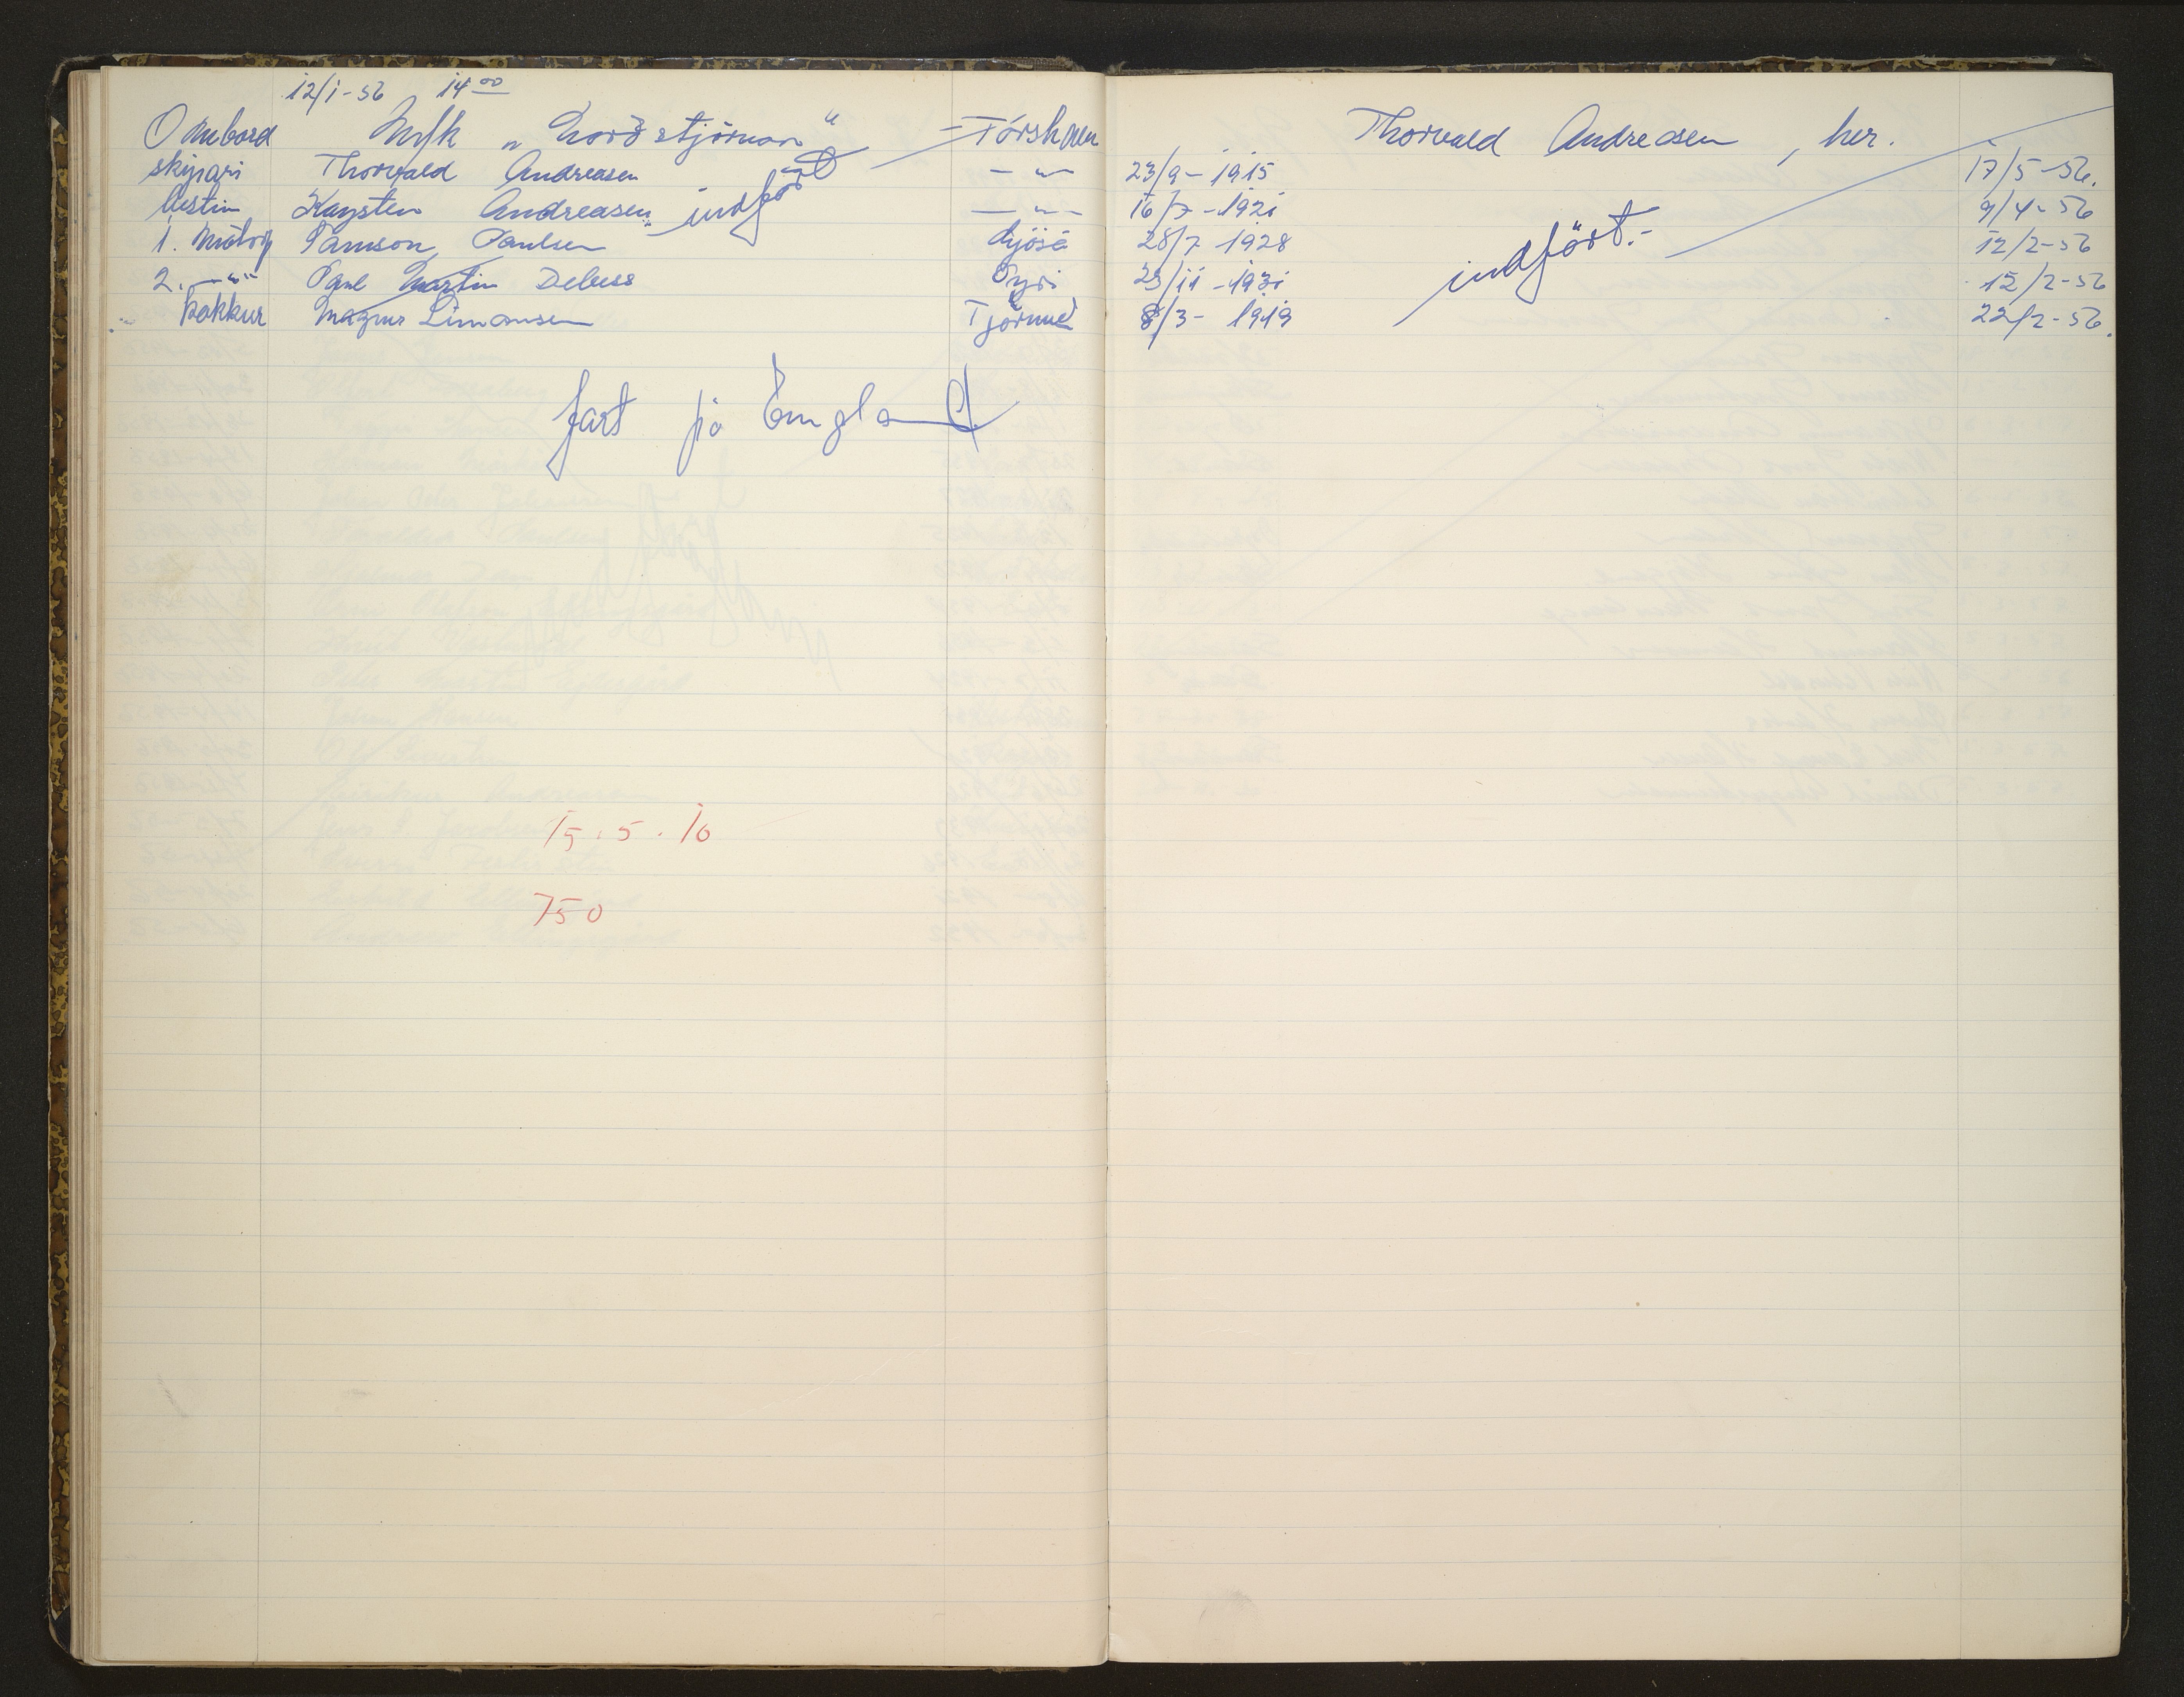 12/1-56 14 00
Ombord M/k „Norðstjörnan“ Tórshavn Thorvald Andreasen, her.
skipari Thorvald Andreasen - " - 23/9-1915 17/5-56.
bestim Kaysten Andreasen indfört - " - 16/7-1921 9/4-56
1. Mótorp Samson Paulsen Ljósá 28/7 1928 indfört.- 12/2-56
2. - " - Poul Martin Debess Oyri 23/11-1931 12/2-56
kokkur Magnus Simonsen Tjörnuv 8/3-1919 22/2-56.
fart på England
15.5.10
750